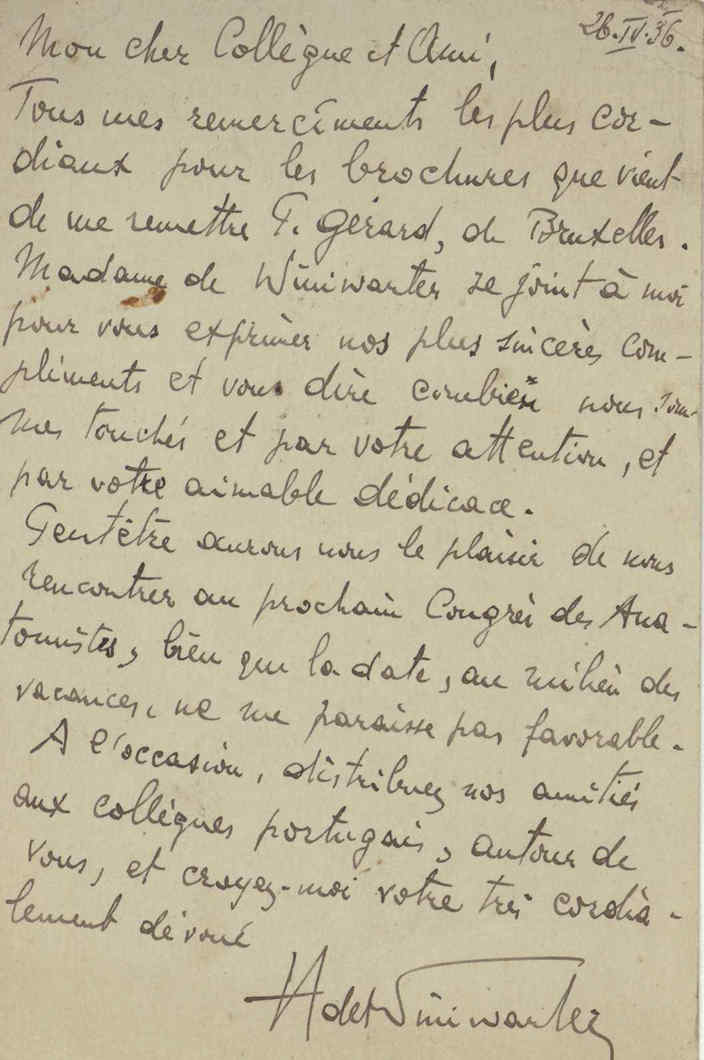 26.IV.36.
Mon cher Collègue et Ami,
Tous mes remerciments les plus cor-
diaux pour les brochures que vient
de me remettre P. Gérard, de Bruxelles.
Madame de Winiwarter se joint à moi
pour vous exprimer nos plus sincères com-
pliments et vous dire combien nous som-
mes touchés et par votre attention, et
par votre aimable dédicace.
Peutêtre aurons nous le plaisir de nous
rencontrer au prochain Congrès des Ana-
tomistes, bien que la date, au milieu des
vacances, ne me paraisse pas favorable.
A l'occasion, distribuez nos amitiés
aux collègues portugais, autour de
vous, et croyez-moi votre très cordia-
lement dévoué
H de Winiwarter